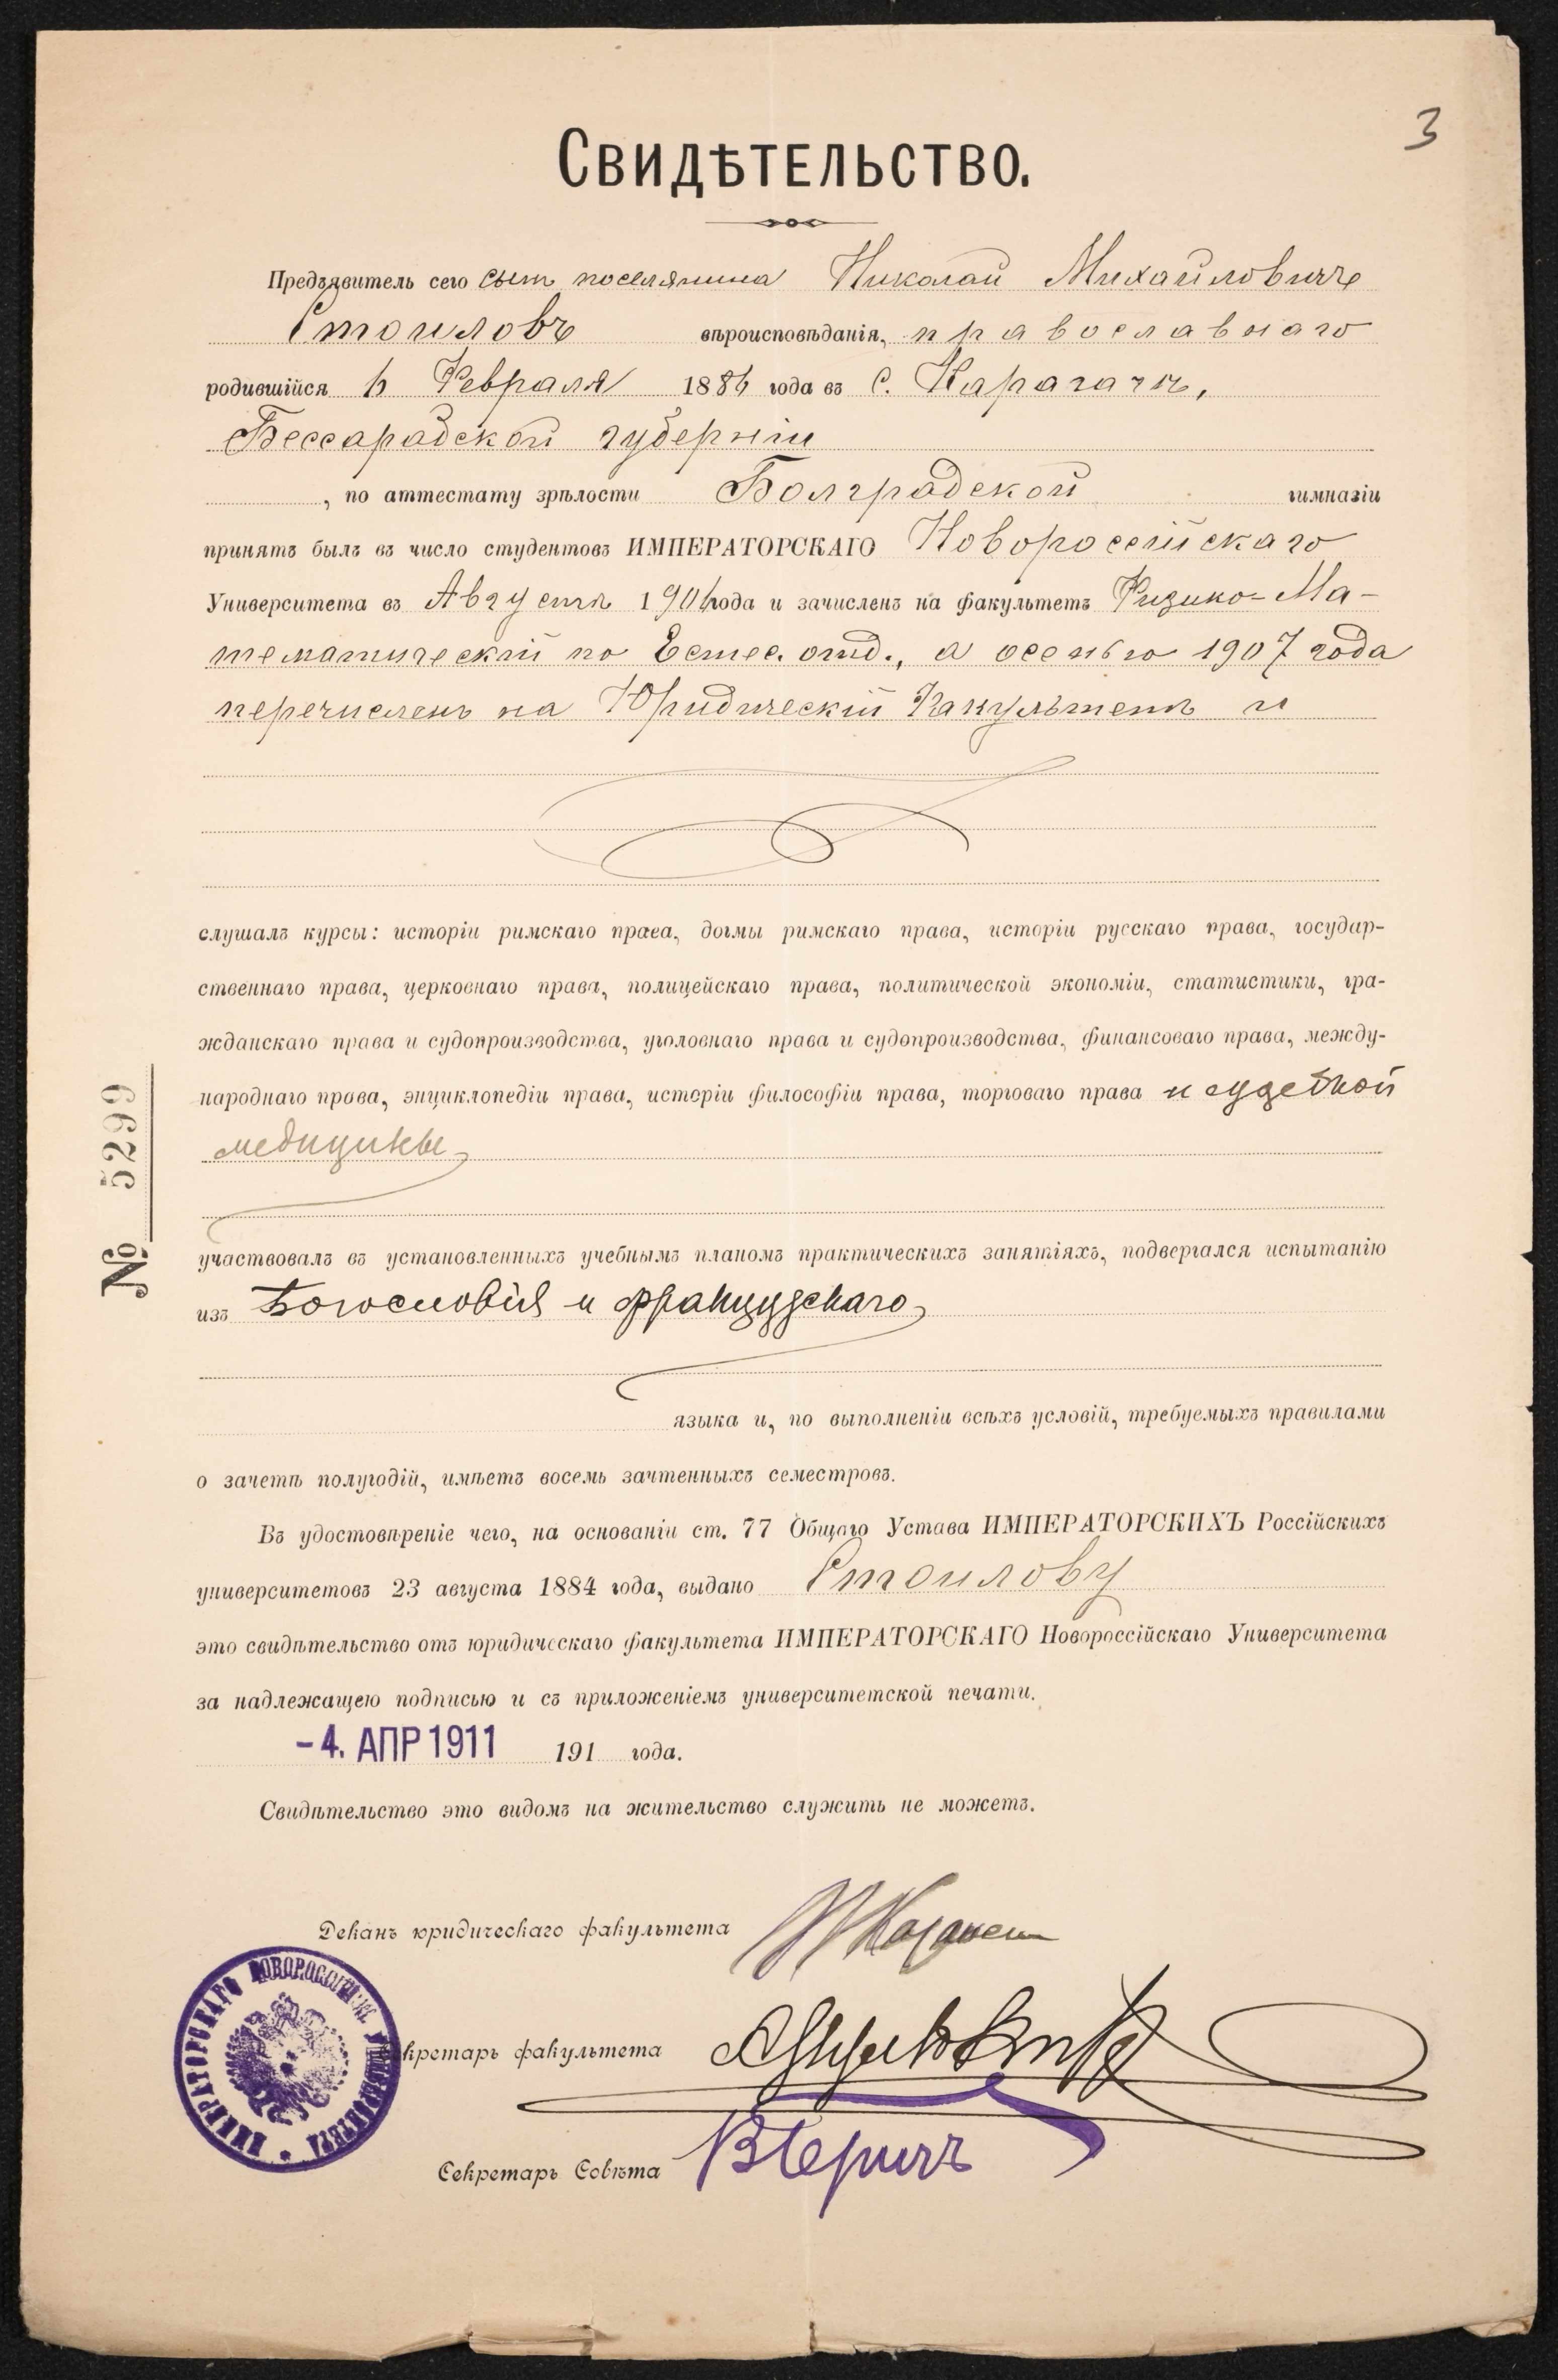 3
Свидѣтельство.
Предъявитель сего сынъ поселянина Николай Михайловичъ
Стоиловъ вѣроисповѣданія, православнаго
родившійся 6 Февраля 1886 года въ с. Карагачъ,
Бессарабской губерніи
, по аттестату зрѣлости Болградской гимназіи
принятъ былъ въ число студентовъ ИМПЕРАТОРСКАГО Новороссійскаго
Университета въ Августѣ 1906 года и зачисленъ на факультетъ Физико-Ма-
тематическій по Естес. отд., а осенью 1907 года
перечисленъ на Юридическій Факультетъ и
слушалъ курсы: исторіи римскаго права, догмы римскаго права, исторіи русскаго права, государ-
ственнаго права, церковнаго права, полицейскаго права, политической экономіи, статистики, гра-
жданскаго права и судопроизводства, уголовнаго права и судопроизводства, финансоваго права, между-
народнаго прова, энциклопедіи права, исторіи философіи права, торговаго права и судебной
медицины,
№ 5299
участвовалъ въ установленныхъ учебнымъ планомъ практическихъ занятіяхъ, подвергался испытанію
изъ Богословія и французскаго,
языка и, по выполненіи всѣхъ условій, требуемыхъ правилами
о зачетѣ полугодій, имѣетъ восемь зачтенныхъ семестровъ.
Въ удостовѣреніе чего, на основаніи ст. 77 Общаго Устава ИМПЕРАТОРСКИХЪ Россійскихъ
университетовъ 23 августа 1884 года, выдано Стоилову
это свидѣтельство отъ юридическаго факультета ИМПЕРАТОРСКАГО Новороссійскаго Университета
за надлежащею подписью и съ приложеніемъ университетской печати.
-4. АПР 1911 191 года.
Свидѣтельство это видомъ на жительство служить не можетъ.
Деканъ юридическаго факультета
ИМПЕРАТОРСКАГО НОВОРОССІЙСК. УНИВЕРСИТЕТА
кретарь факультета
Секретарь Совѣта